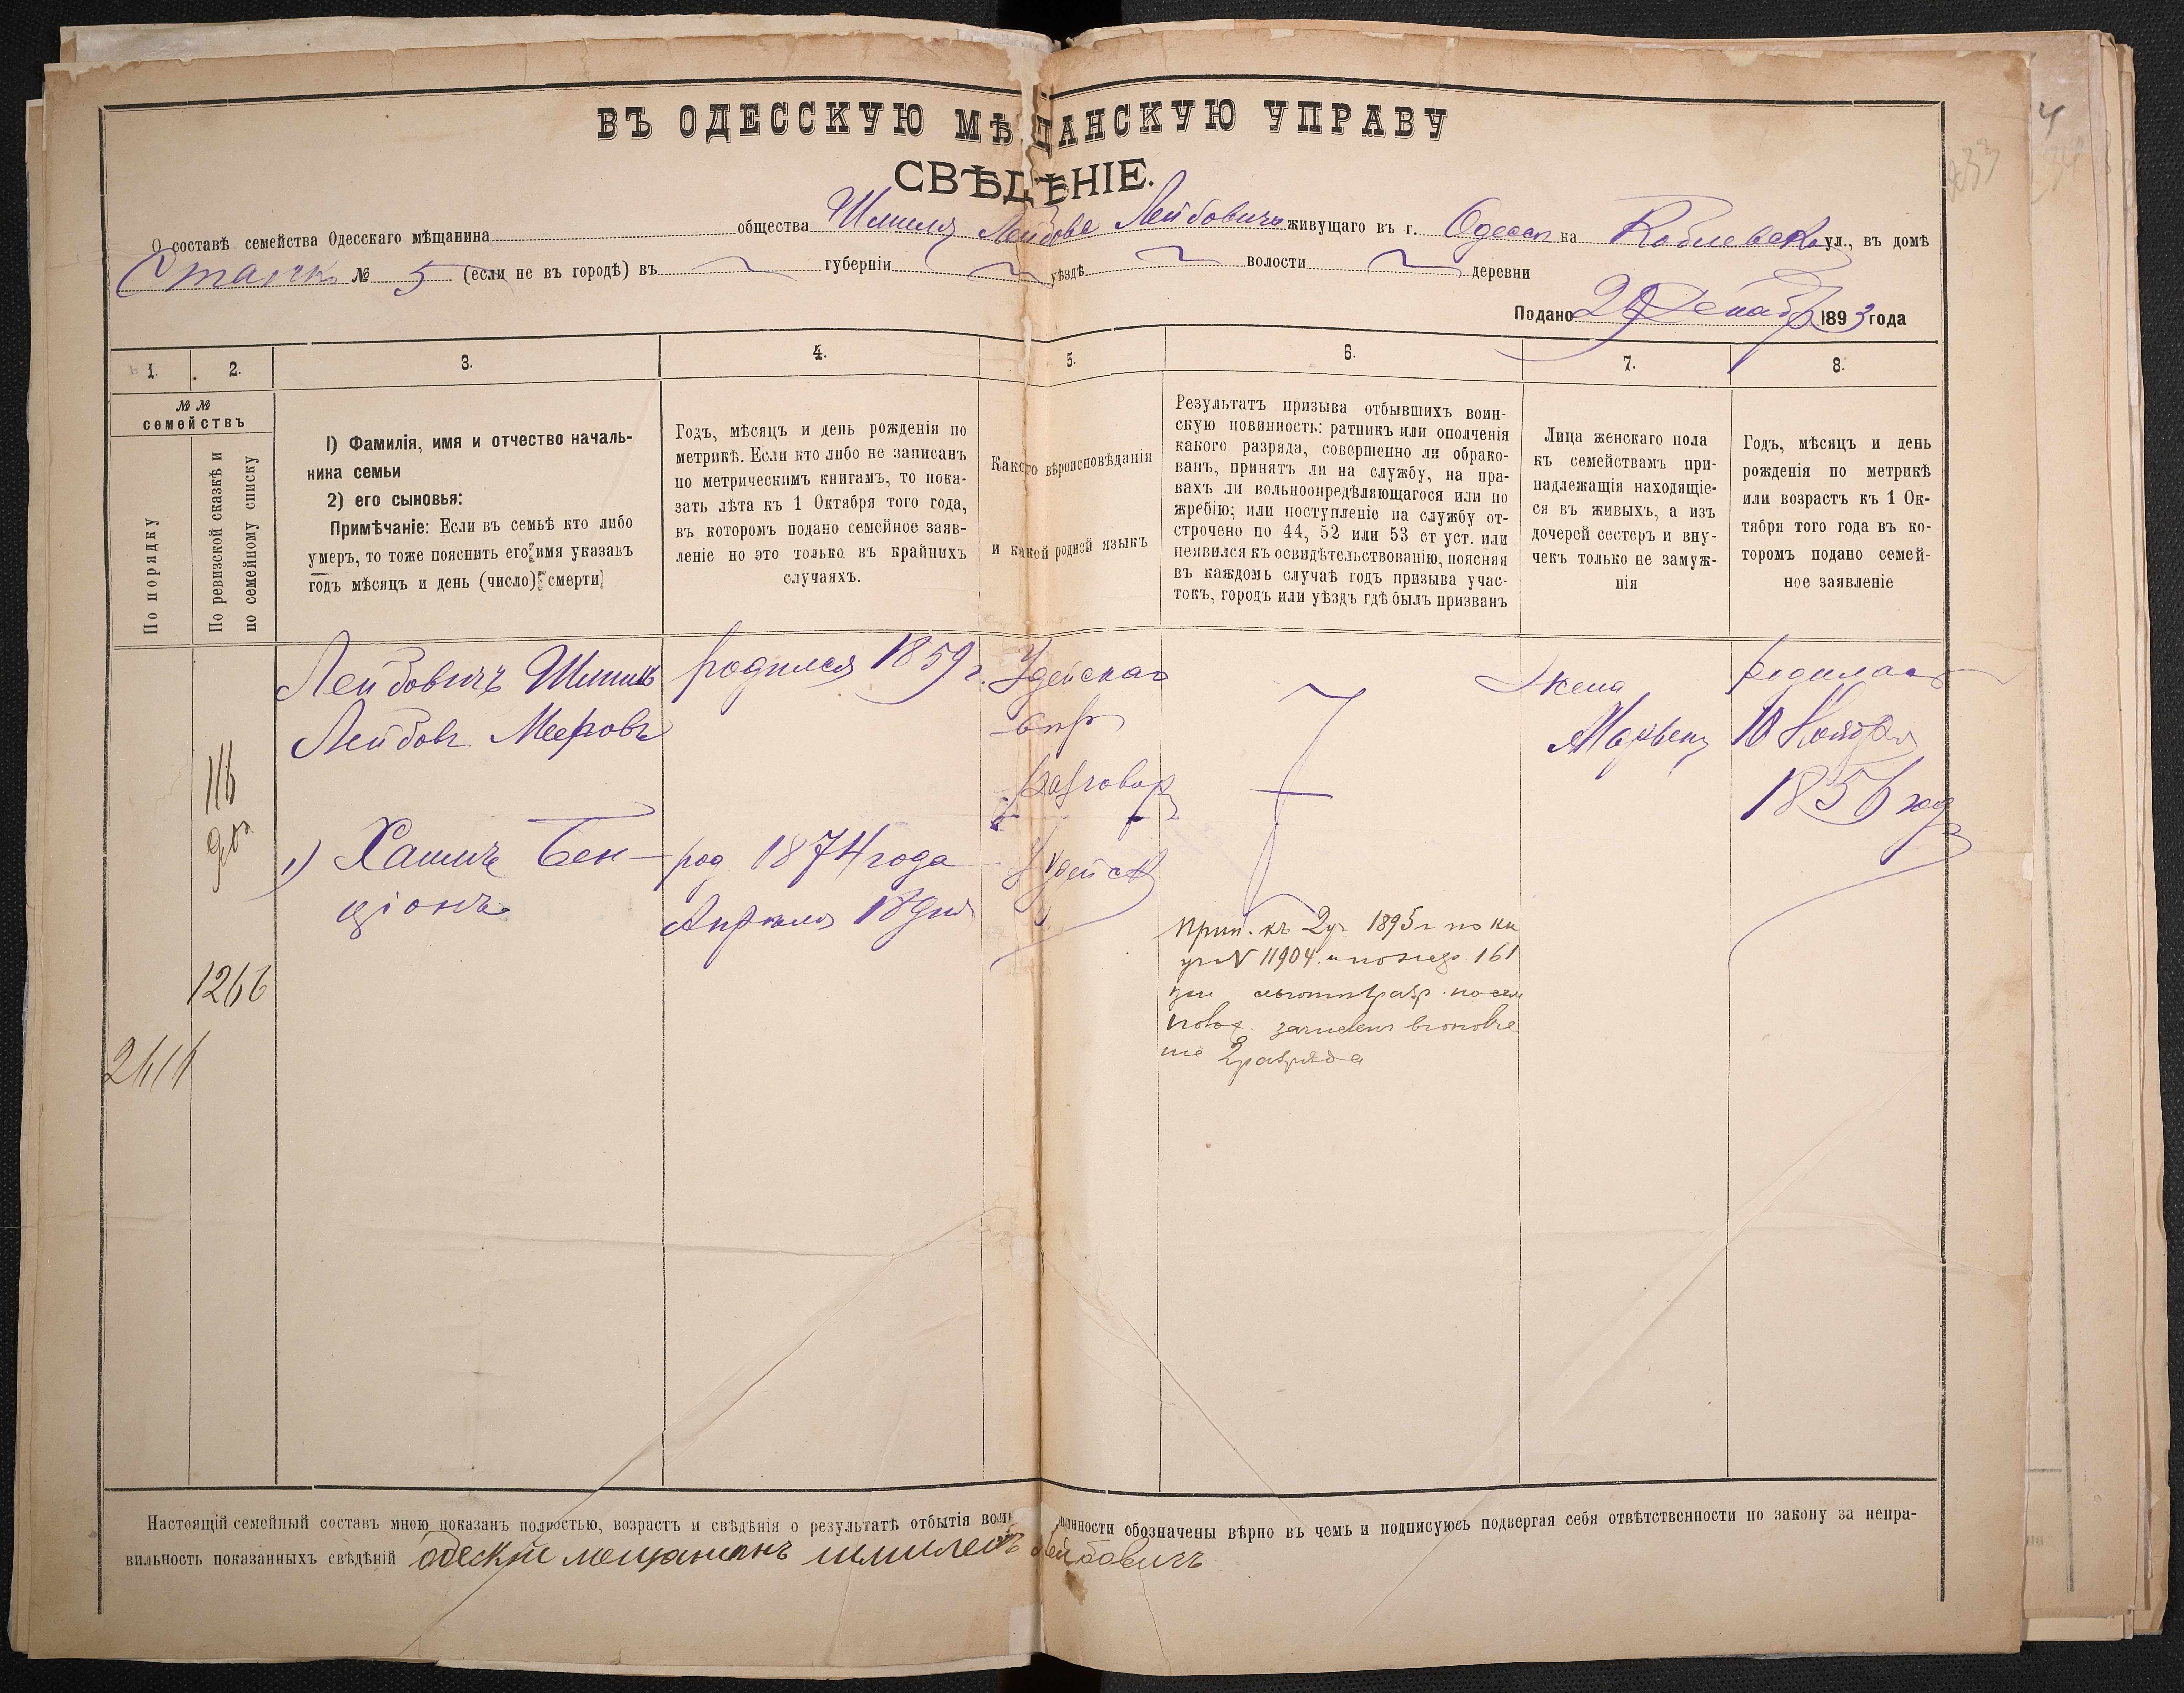 ВЪ ОДЕССКУЮ МѢЩАНСКУЮ УПРАВУ
СВѢДѢНІЕ.
О составѣ семейства Одесскаго мѣщанина общества Шмиля Лейбова Лейбовича живущаго въ г. Одессѣ на Коблевской ул., въ домѣ
№ 5 (если не въ городѣ) въ губерніи уѣздѣ волости деревни
Подано Декабр 1893 года
1.
2.
3.
4.
5.
6.
7.
8.
№ №
семействъ
По порядку
По ревизской сказкѣ и
по семейному списку
1) Фамилія, имя и отчество началь-
ника семьи
2) его сыновья:
Примѣчаніе: Если въ семьѣ кто либо
умеръ, то тоже пояснить его имя указавъ
годъ мѣсяцъ и день (число) смерти
Годъ, мѣсяцъ и день рожденія по
метрикѣ. Если кто либо не записанъ
по метрическимъ книгамъ, то пока-
зать лѣта къ 1 Октября того года,
въ которомъ подано семейное заяв-
леніе но это только въ крайнихъ
случаяхъ.
Какого вѣроисповѣданія
и какой родной языкъ
Результатъ призыва отбывшихъ воин-
скую повинность: ратникъ или ополченія
какого разряда, совершенно ли обрако-
ванъ, принятъ ли на службу, на пра-
вахъ ли вольноопредѣляющагося или по
жребію; или поступленіе на службу от-
строчено по 44, 52 или 53 ст уст. или
неявился къ освидѣтельствованію, поясняя
въ каждомъ случаѣ годъ призыва учас-
токъ, городъ или уѣздъ гдѣ былъ призванъ
Лица женскаго пола
къ семействамъ при-
надлежащія находящіе-
ся въ живыхъ, а изъ
дочерей сестеръ и вну-
чекъ только не замуж-
нія
Годъ, мѣсяцъ и день
рожденія по метрикѣ
или возрастъ къ 1 Ок-
тября того года въ ко-
торомъ подано семей-
ное заявленіе
Лейбовичъ Шмиль
Лейбовъ Мееровъ
родился 1859 г.
Іудейскаго
вѣр
разговор
Іудейск
Жена
родилась
10 Ноября
1856 год
116
1) Хаимъ Бен-
ціонъ
род 1874 года
Апрѣля 18 дня
1266
Приз. къ 2 уч 1895 г по
№ 11904 и по жереб. 161
2 разряда
Настоящій семейный составъ мною показанъ полностью, возрастъ и свѣдѣнія о результатѣ отбытія воинской повинности обозначены вѣрно въ чемъ и подписуюсь подвергая себя отвѣтственности по закону за непра-
вильность показанныхъ свѣдѣній одескій мещанинъ шмилъ Лейбовичъ